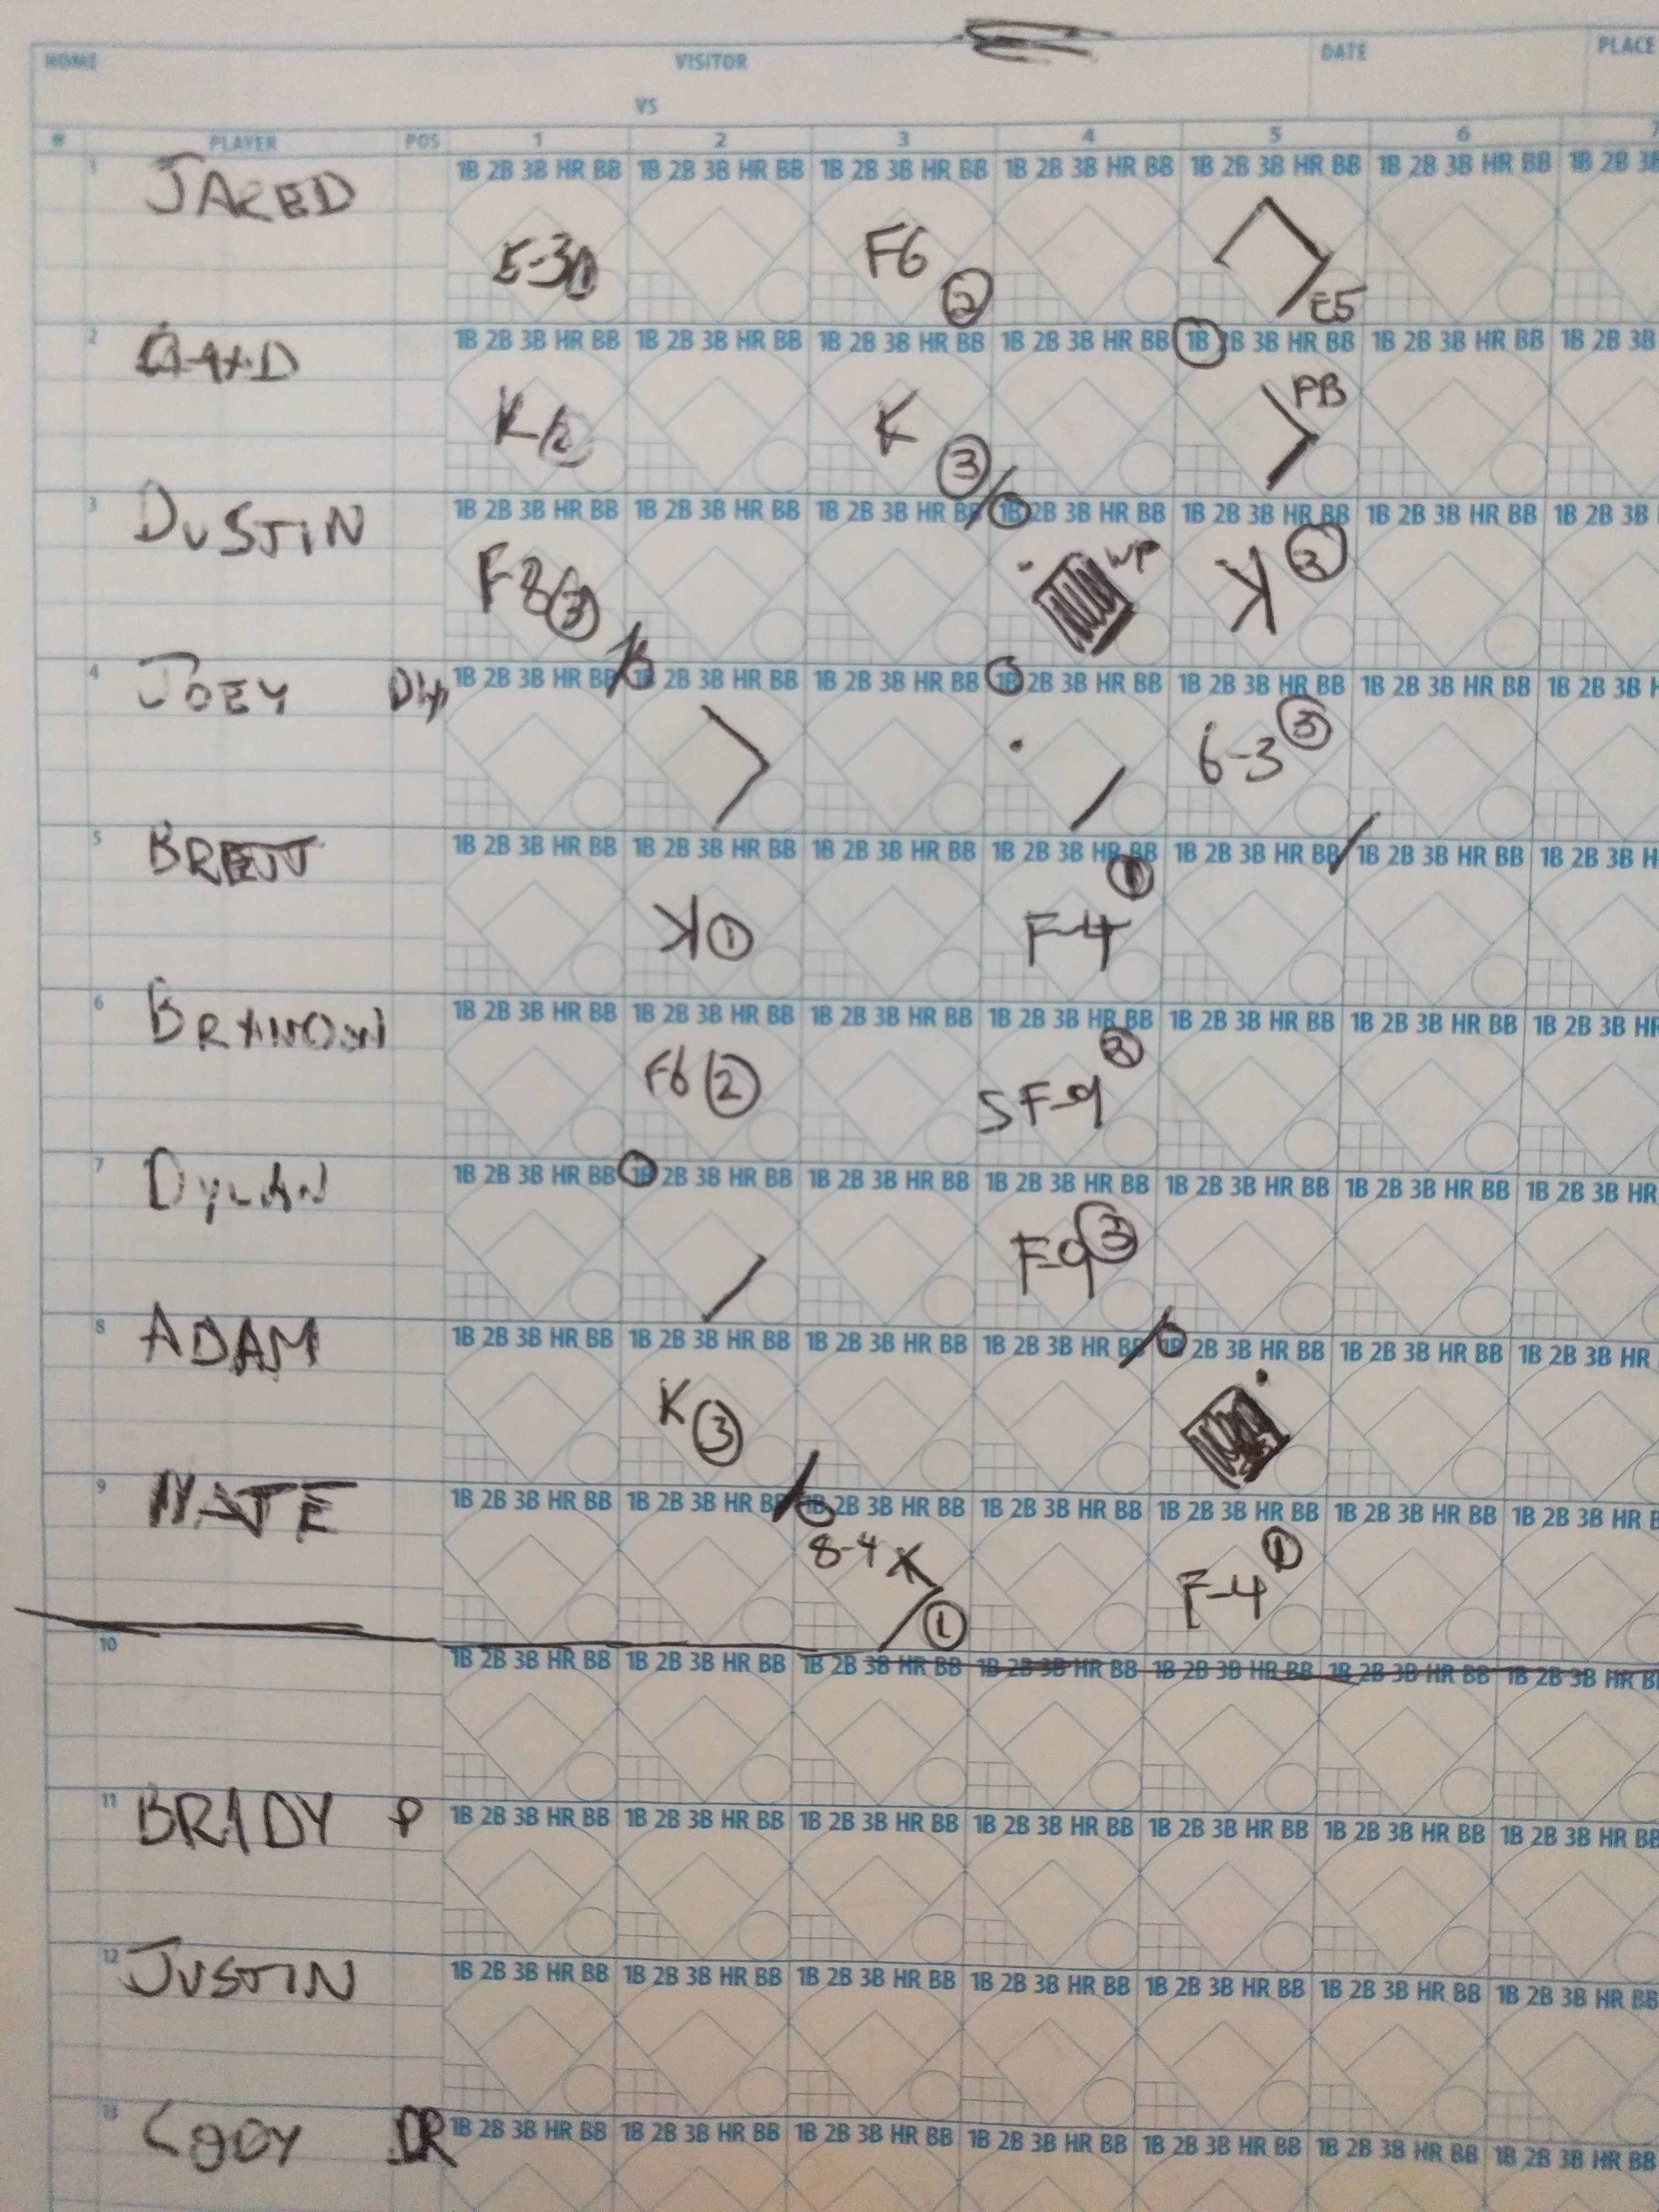 HOME VISITOR DATE PLACE
VS
# PLAYER POS 1 2 3 4 5 6 7
1 JARED 1B 2B 3B HR BB 1B 2B 3B HR BB 1B 2B 3B HR BB 1B 2B 3B HR BB 1B 2B 3B HR BB 1B 2B 3B HR BB 1B 2B 3B
5-3 1 F6 2 E5
2 1B 2B 3B HR BB 1B 2B 3B HR BB 1B 2B 3B HR BB 1B 2B 3B HR BB 1B 2B 3B HR BB 1B 2B 3B HR BB 1B 2B 3B
K 2 K 3 PB
3 DUSTIN 1B 2B 3B HR BB 1B 2B 3B HR BB 1B 2B 3B HR BB 1B 2B 3B HR BB 1B 2B 3B HR BB 1B 2B 3B HR BB 1B 2B 3B
F8 3 WP K 2
4 JOEY DH 1B 2B 3B HR BB 1B 2B 3B HR BB 1B 2B 3B HR BB 1B 2B 3B HR BB 1B 2B 3B HR BB 1B 2B 3B HR BB 1B 2B 3B H
6-3 3
5 BRETT 1B 2B 3B HR BB 1B 2B 3B HR BB 1B 2B 3B HR BB 1B 2B 3B HR BB 1B 2B 3B HR BB 1B 2B 3B HR BB 1B 2B 3B H
K 1 F-4 1
6 1B 2B 3B HR BB 1B 2B 3B HR BB 1B 2B 3B HR BB 1B 2B 3B HR BB 1B 2B 3B HR BB 1B 2B 3B HR BB 1B 2B 3B HR
F6 2 SF-9 2
7 DYLAN 1B 2B 3B HR BB 1B 2B 3B HR BB 1B 2B 3B HR BB 1B 2B 3B HR BB 1B 2B 3B HR BB 1B 2B 3B HR BB 1B 2B 3B HR
F-9 3
8 ADAM 1B 2B 3B HR BB 1B 2B 3B HR BB 1B 2B 3B HR BB 1B 2B 3B HR BB 1B 2B 3B HR BB 1B 2B 3B HR BB 1B 2B 3B HR
K 3
9 NATE 1B 2B 3B HR BB 1B 2B 3B HR BB 1B 2B 3B HR BB 1B 2B 3B HR BB 1B 2B 3B HR BB 1B 2B 3B HR BB 1B 2B 3B HR B
8-4 X 1 F-4 1
10 1B 2B 3B HR BB 1B 2B 3B HR BB 1B 2B 3B HR BB 1B 2B 3B HR BB 1B 2B 3B HR BB 1B 2B 3B HR BB 1B 2B 3B HR B
11 BRADY P 1B 2B 3B HR BB 1B 2B 3B HR BB 1B 2B 3B HR BB 1B 2B 3B HR BB 1B 2B 3B HR BB 1B 2B 3B HR BB 1B 2B 3B HR BB
12 JUSTIN 1B 2B 3B HR BB 1B 2B 3B HR BB 1B 2B 3B HR BB 1B 2B 3B HR BB 1B 2B 3B HR BB 1B 2B 3B HR BB 1B 2B 3B HR BB
13 CODY DR 1B 2B 3B HR BB 1B 2B 3B HR BB 1B 2B 3B HR BB 1B 2B 3B HR BB 1B 2B 3B HR BB 1B 2B 3B HR BB 1B 2B 3B HR BB